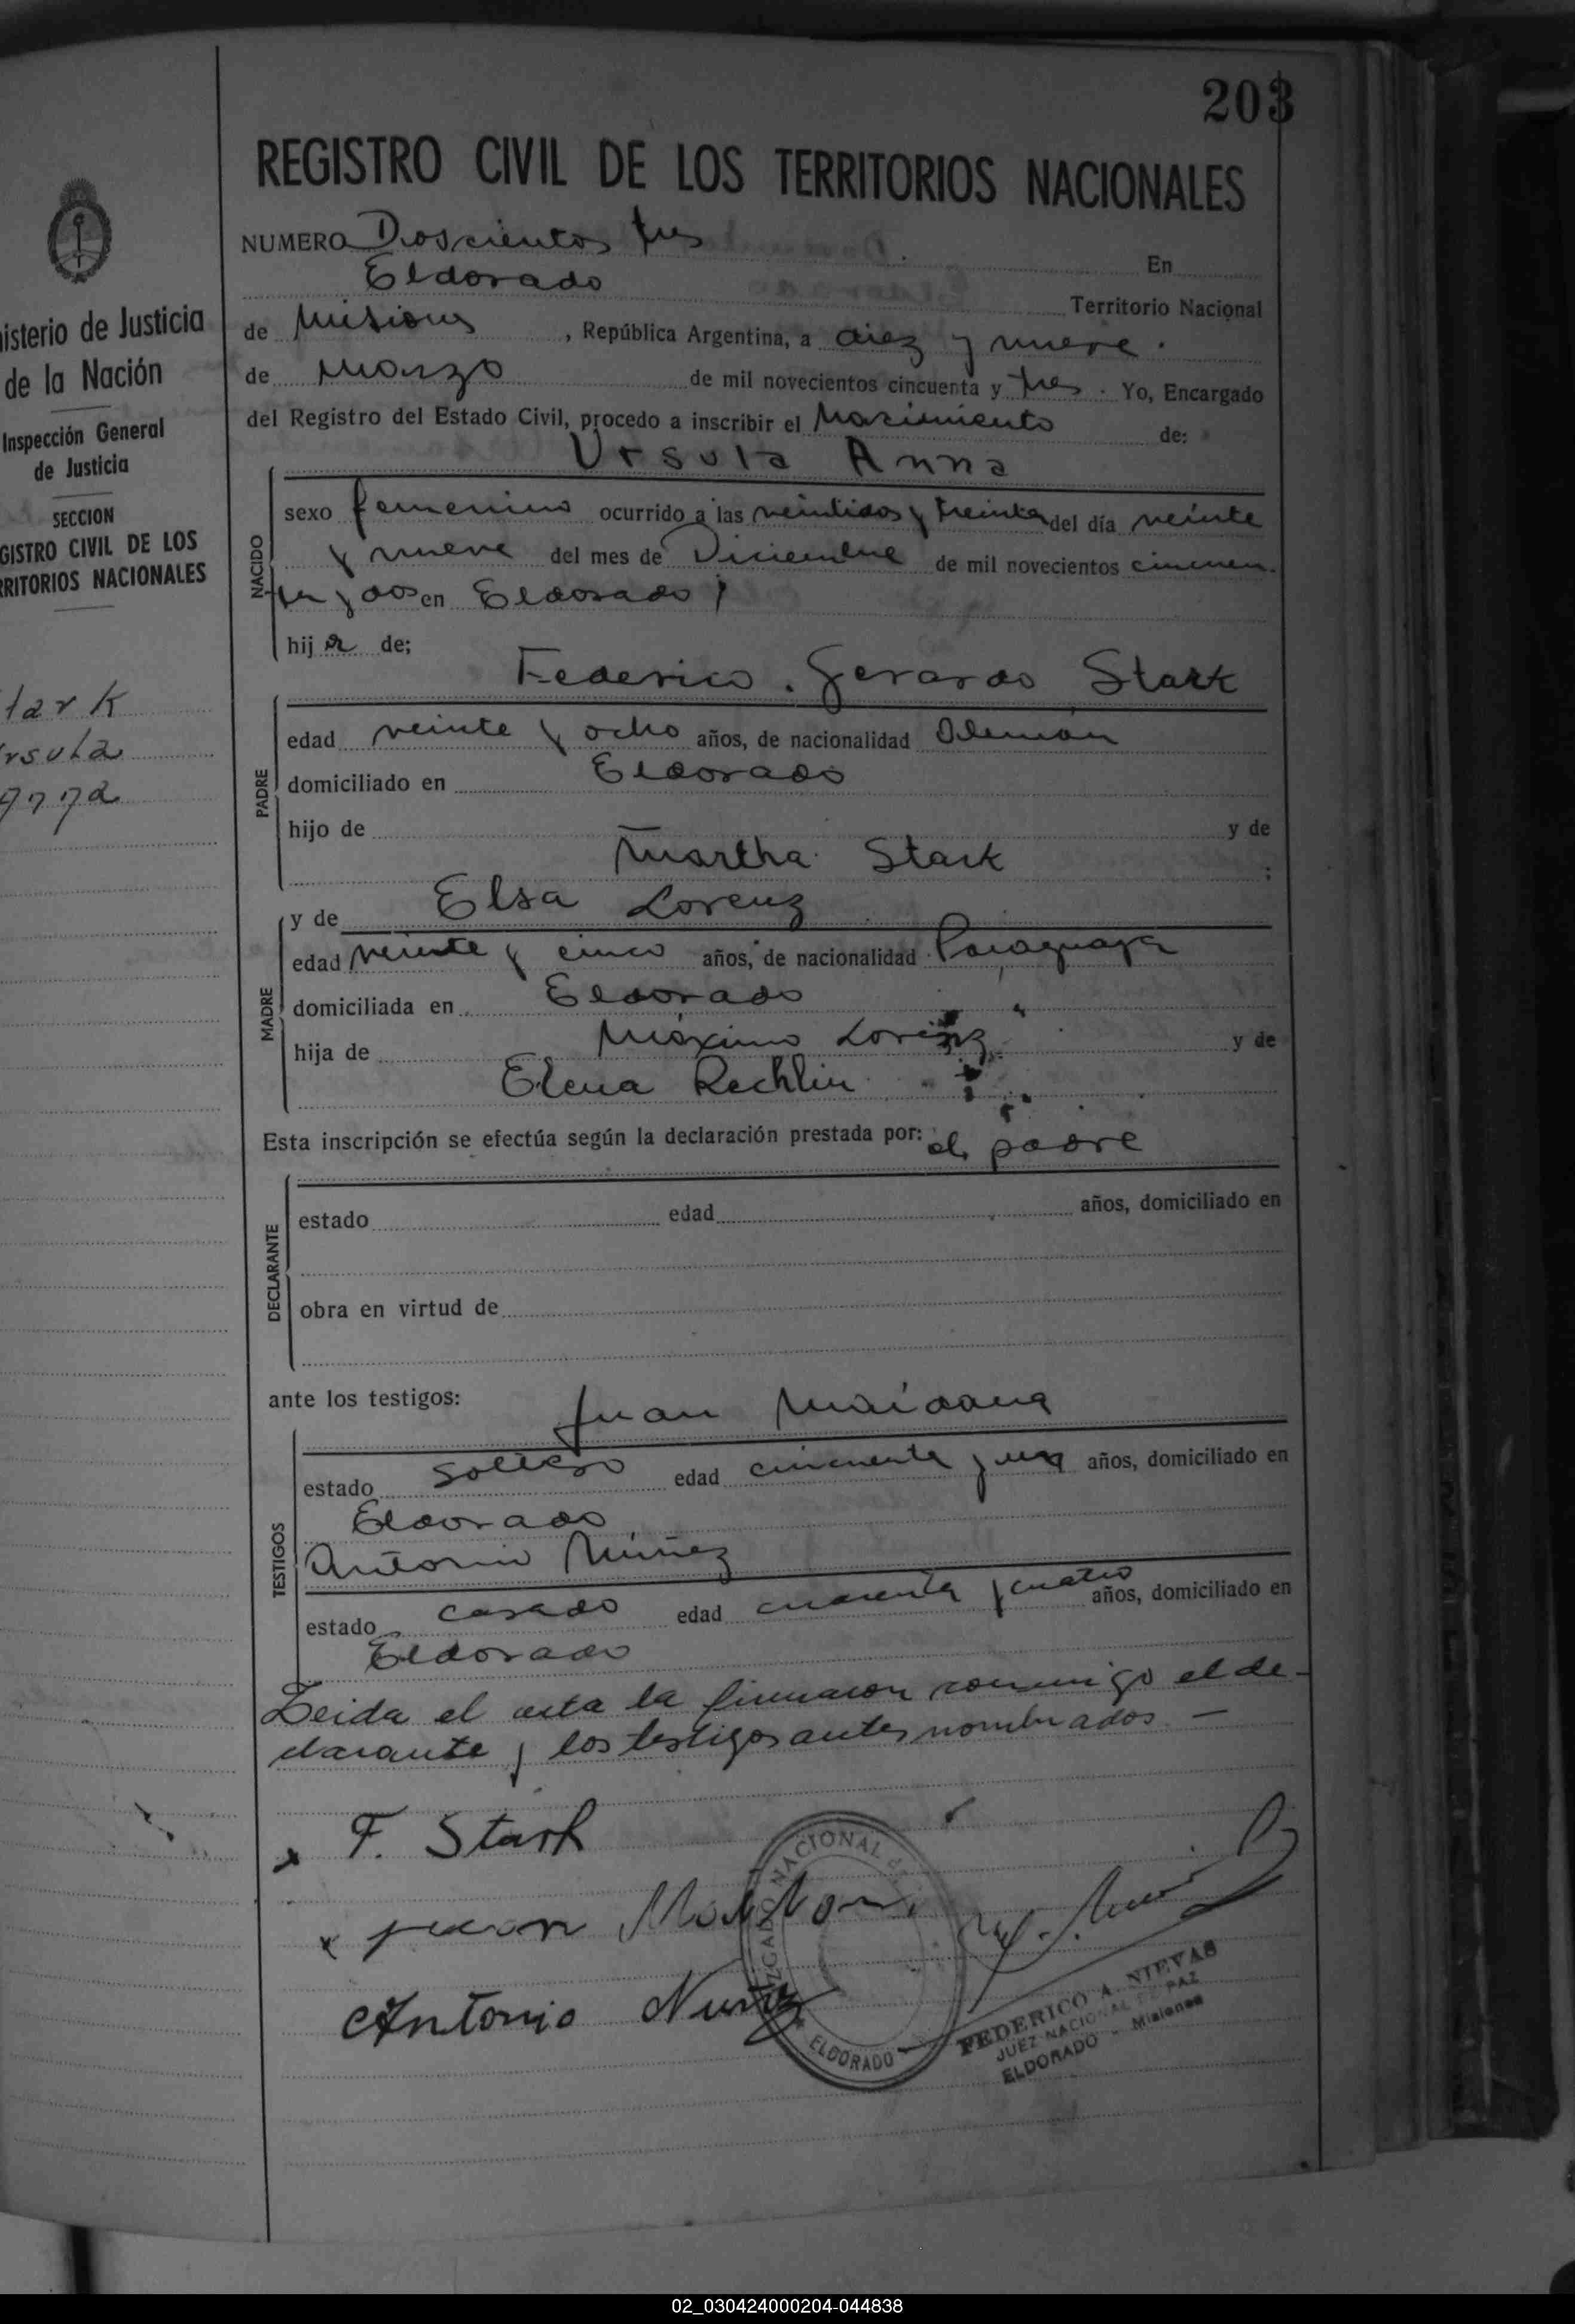 203
REGISTRO CIVIL DE LOS TERRITORIOS NACIONALES
NUMERO Doscientos tres En
Eldorado Territorio Nacional
de Misiones, República Argentina, a diez y nueve
de Marzo de mil novecientos cincuenta y tres. Yo, Encargado
del Registro del Estado Civil, procedo a inscribir el Nacimiento de:
Ursula Anna
NACIDO
sexo femenino ocurrido a las veintidos y treinta del día veinte
y nueve del mes de Diciembre de mil novecientos cincuen-
ta y dos en Eldorado;
hija de;
Federico Gerardo Stark
PADRE
edad veinte y ocho años, de nacionalidad Aleman
domiciliado en Eldorado
hijo de y de
Martha Stark ;
y de Elsa Lorenz
MADRE
edad veinte y cinco años, de nacionalidad Paraguaya
domiciliada en Eldorado
hija de Máximo Lorenz y de
Elena Rechlin
Esta inscripción se efectúa según la declaración prestada por: el padre
DECLARANTE
estado edad años, domiciliado en
obra en virtud de
ante los testigos: Juan Maidana
TESTIGOS
estado soltero edad cincuenta y un años, domiciliado en
Eldorado
Antonio Núñez
estado casado edad cuarenta y cuatro años, domiciliado en
Eldorado
Leida el acta la firmaron conmigo el de-
clarante y los testigos antes nombrados —
x F. Stark
x juan
Antonio Nuñez
JUZGADO NACIONAL DE
ELDORADO
FEDERICO A. NIEVAS
JUEZ NACIONAL DE PAZ
ELDORADO - Misiones
isterio de Justicia
de la Nación
Inspección General
de Justicia
SECCION
GISTRO CIVIL DE LOS
RRITORIOS NACIONALES
tark
rsula
nna
02_030424000204-044838